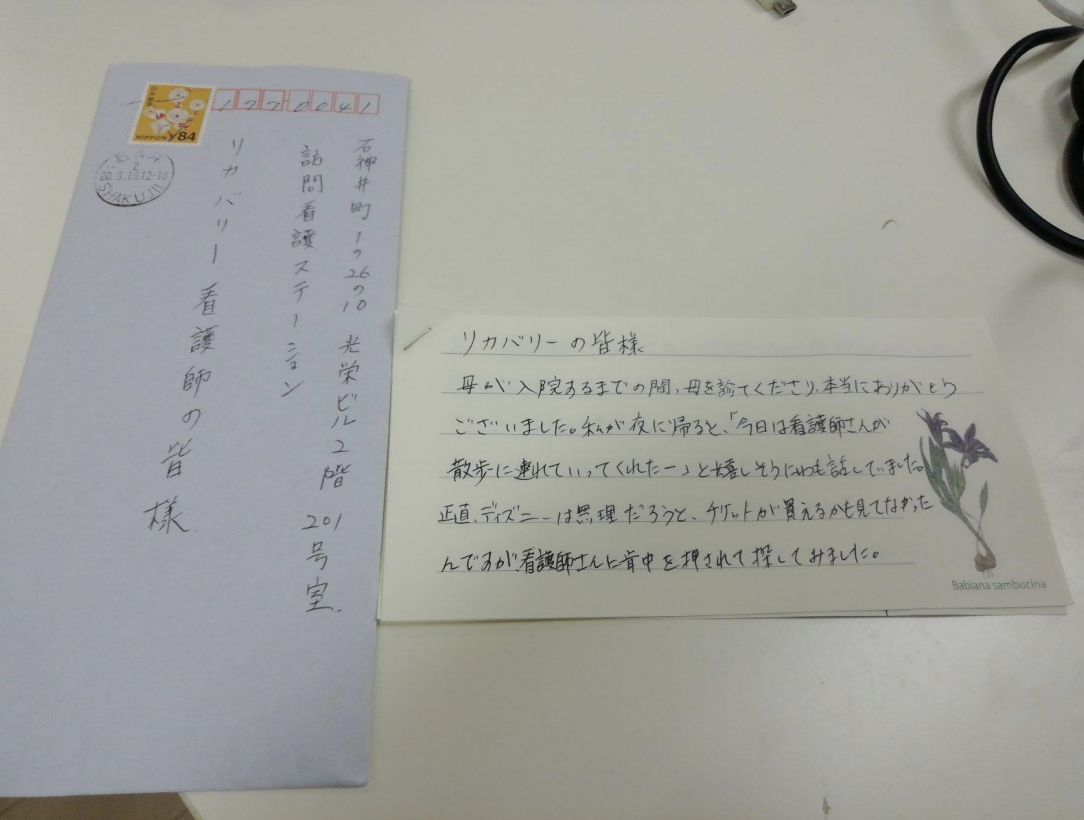 1770041
石神井町1の26の10 光栄ビル2階 201号室
訪問看護ステーション
リカバリー 看護師の皆様
NIPPON 84
20.3.13.12-18
SHAKUJII
リカバリーの皆様
母が入院するまでの間、母を診てくださり、本当にありがとう
ございました。私が夜に帰ると、「今日は看護師さんが
散歩に連れていってくれたー」と嬉しそうにいつも話していました。
正直、ディズニーは無理だろうと、チケットが買えるかも見てなかった
んですが、看護師さんに背中を押されて探してみました。
Babiana sambucina